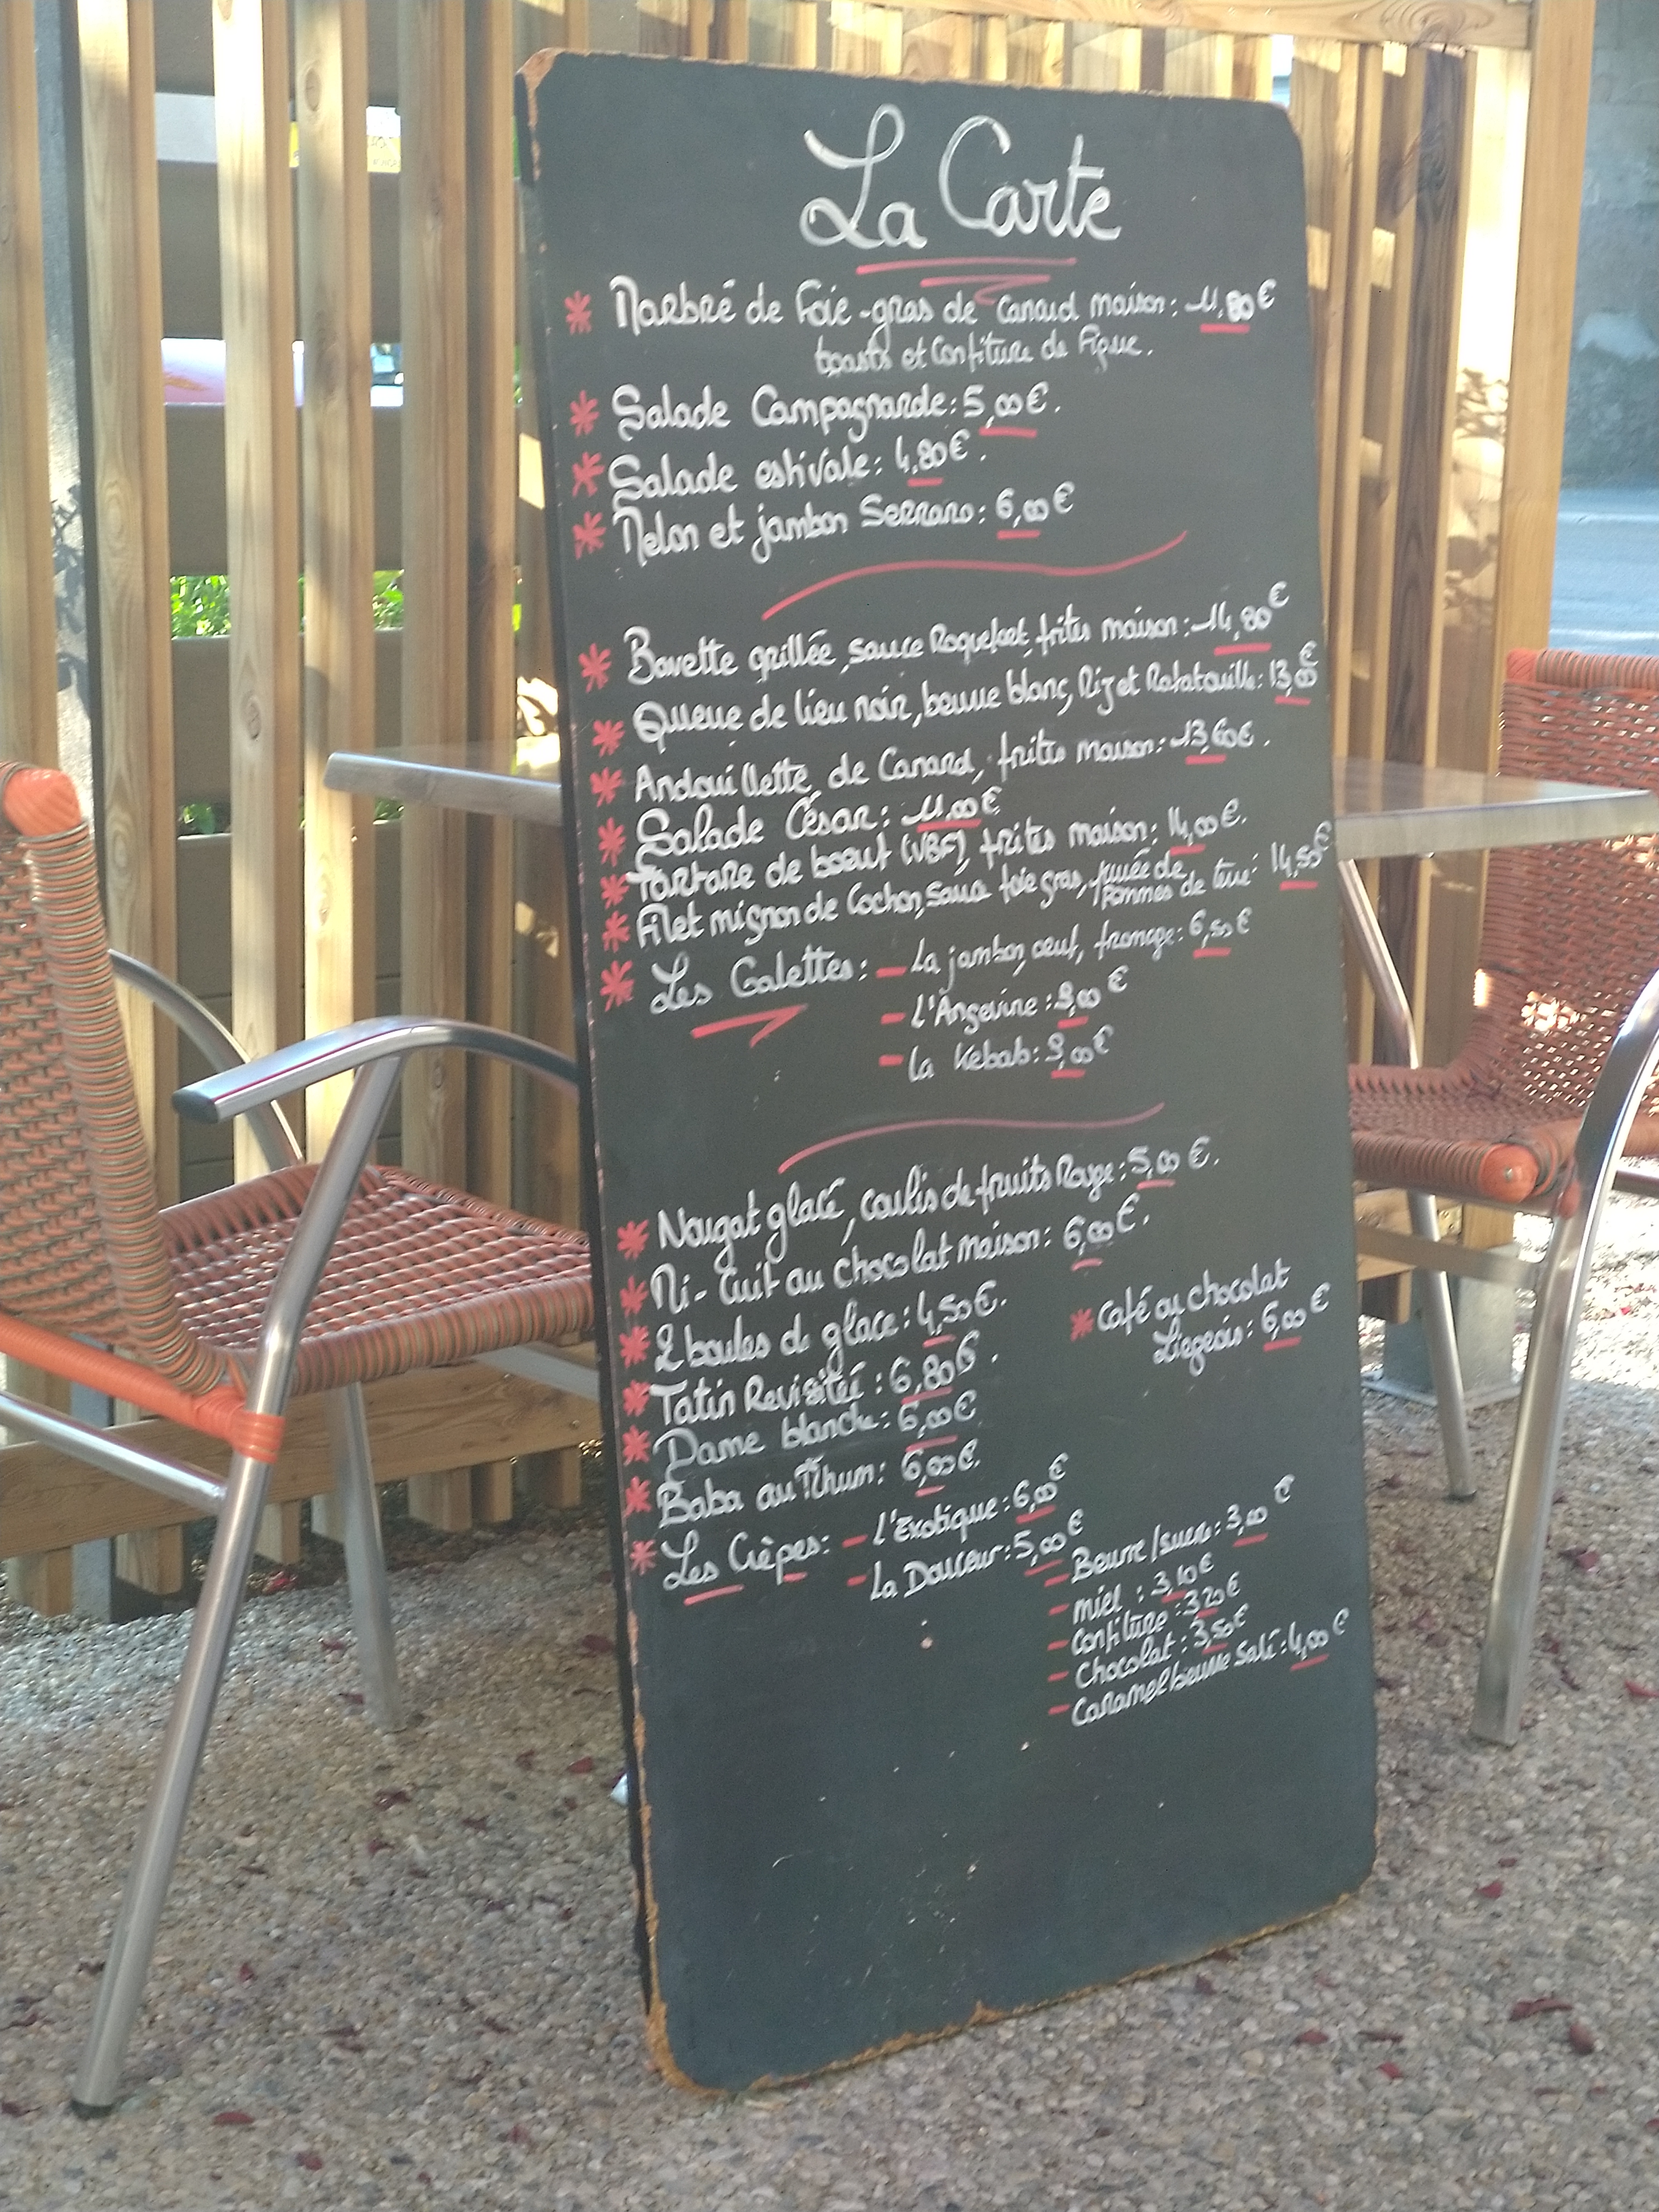 La Carte
* Marbré de Foie-gras de canard maison: 11,80€
toasts et Confiture de Figue.
* Salade Campagnarde: 5,00€.
* Salade estivale: 4,80€.
* Melon et jambon Serrano: 6,00€
* Bavette grillée, sauce Roquefort, frites maison: 14,80€
* Queue de lieu noir, beurre blanc, Riz et Ratatouille: 13,00€
* Andouillette de Canard, frites maison: 13,60€.
* Salade César: 11,00€
* Tartare de boeuf (VBF), frites maison: 14,00€.
* Filet mignon de Cochon, sauce foie gras, purée de
pommes de terre: 14,50€
* Les Galettes: - La jambon, oeuf, fromage: 6,50€
- l'Angevine: 9,00€
- la Kebab: 9,00€
* Nougat glacé, coulis de fruits Rouge: 5,00€.
* Mi-Cuit au chocolat maison: 6,00€.
* 2 boules de glace: 4,50€.
* Café ou chocolat
Liegeois: 6,00€
* Tatin Revisitée: 6,80€.
* Dame blanche: 6,00€
* Baba au Rhum: 6,00€.
* Les Crêpes: - l'Exotique: 6,00€
- La Douceur: 5,00€
- Beurre/sucre: 3,00€
- miel: 3,10€
- Confiture: 3,20€
- Chocolat: 3,50€
- Caramel beurre salé: 4,00€